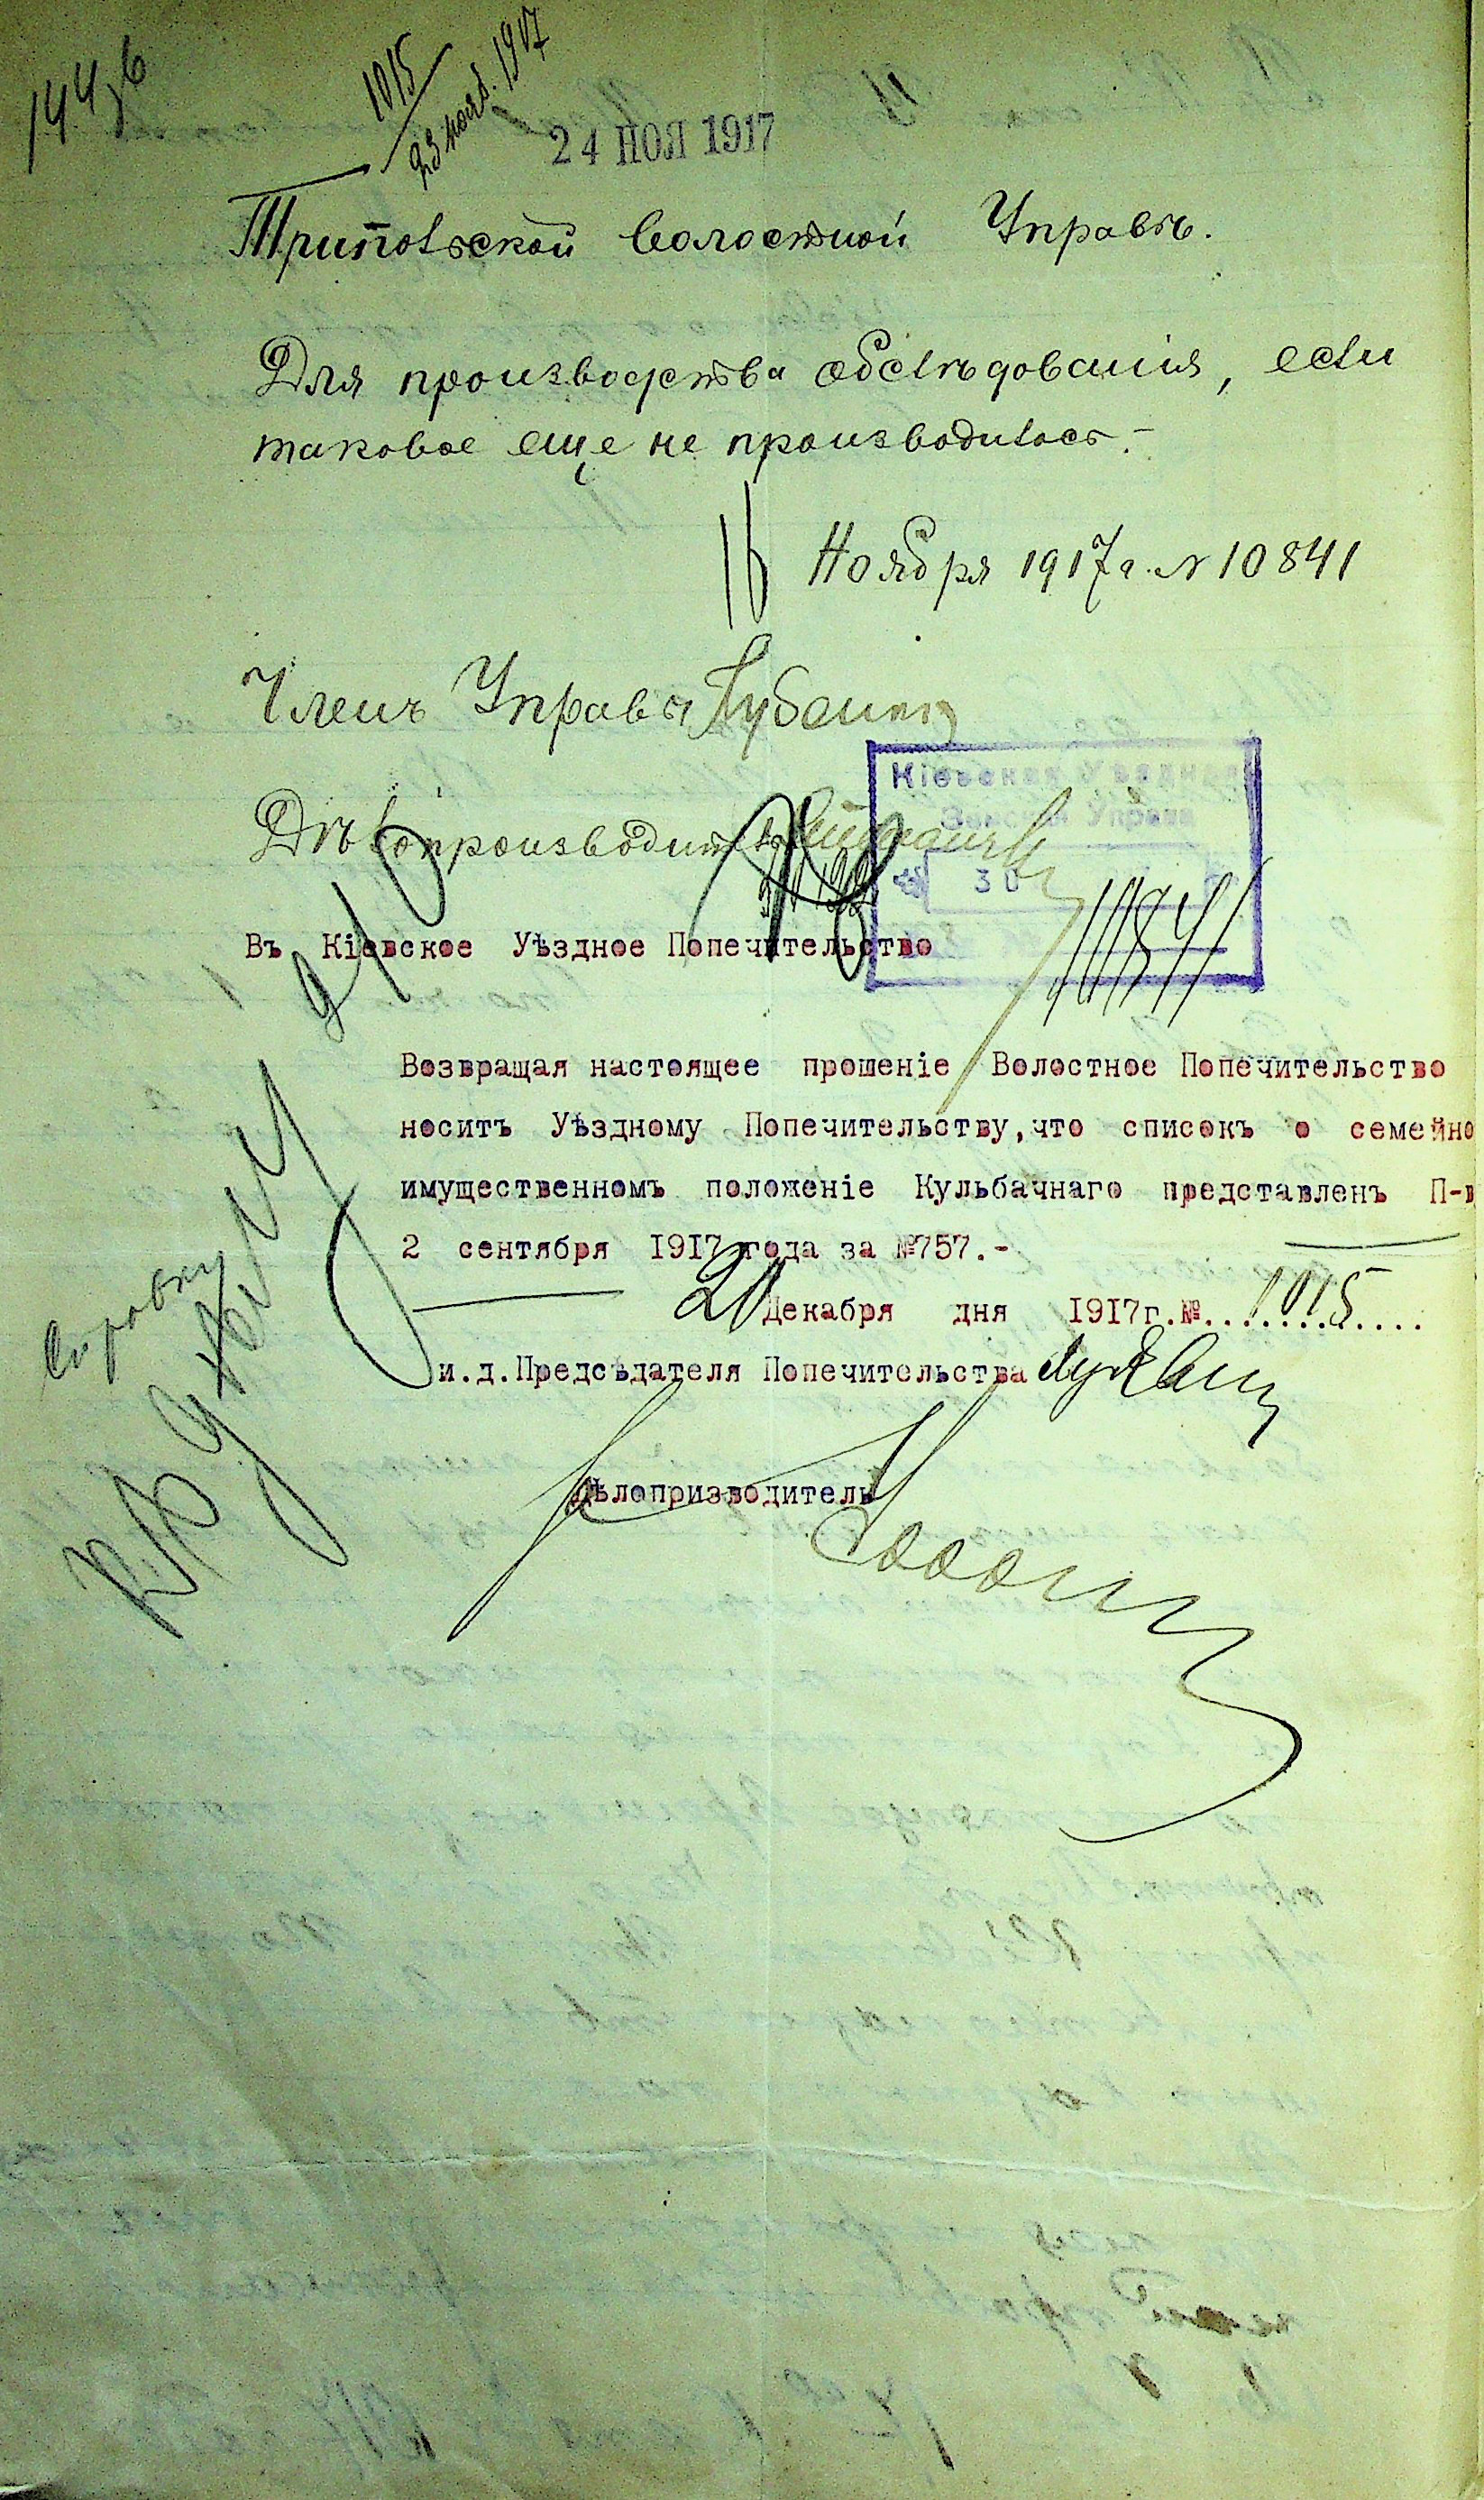 144
1015
23 нояб. 1917
24 НОЯ 1917
Трипольской волостной Управѣ.
Для производства обслѣдованія, если
таковое еще не производилось.-
16 Ноября 1917 г. N 10841
Членъ Управы
Дѣлопроизводитель
Кіевская Уѣздная
Земская Управа
30
11841
Въ Кіевское Уѣздное Попечительство
Возвращая настоящее прошеніе Волостное Попечительство
носитъ Уѣздному Попечительству,что списокъ о семейно
имущественномъ положеніе Кульбачнаго представленъ П-в
2 сентября 1917 года за №757.-
20 Декабря дня 1917г.№ 1015
и.д.Предсѣдателя Попечительства
Дѣлопризводитель
Справку